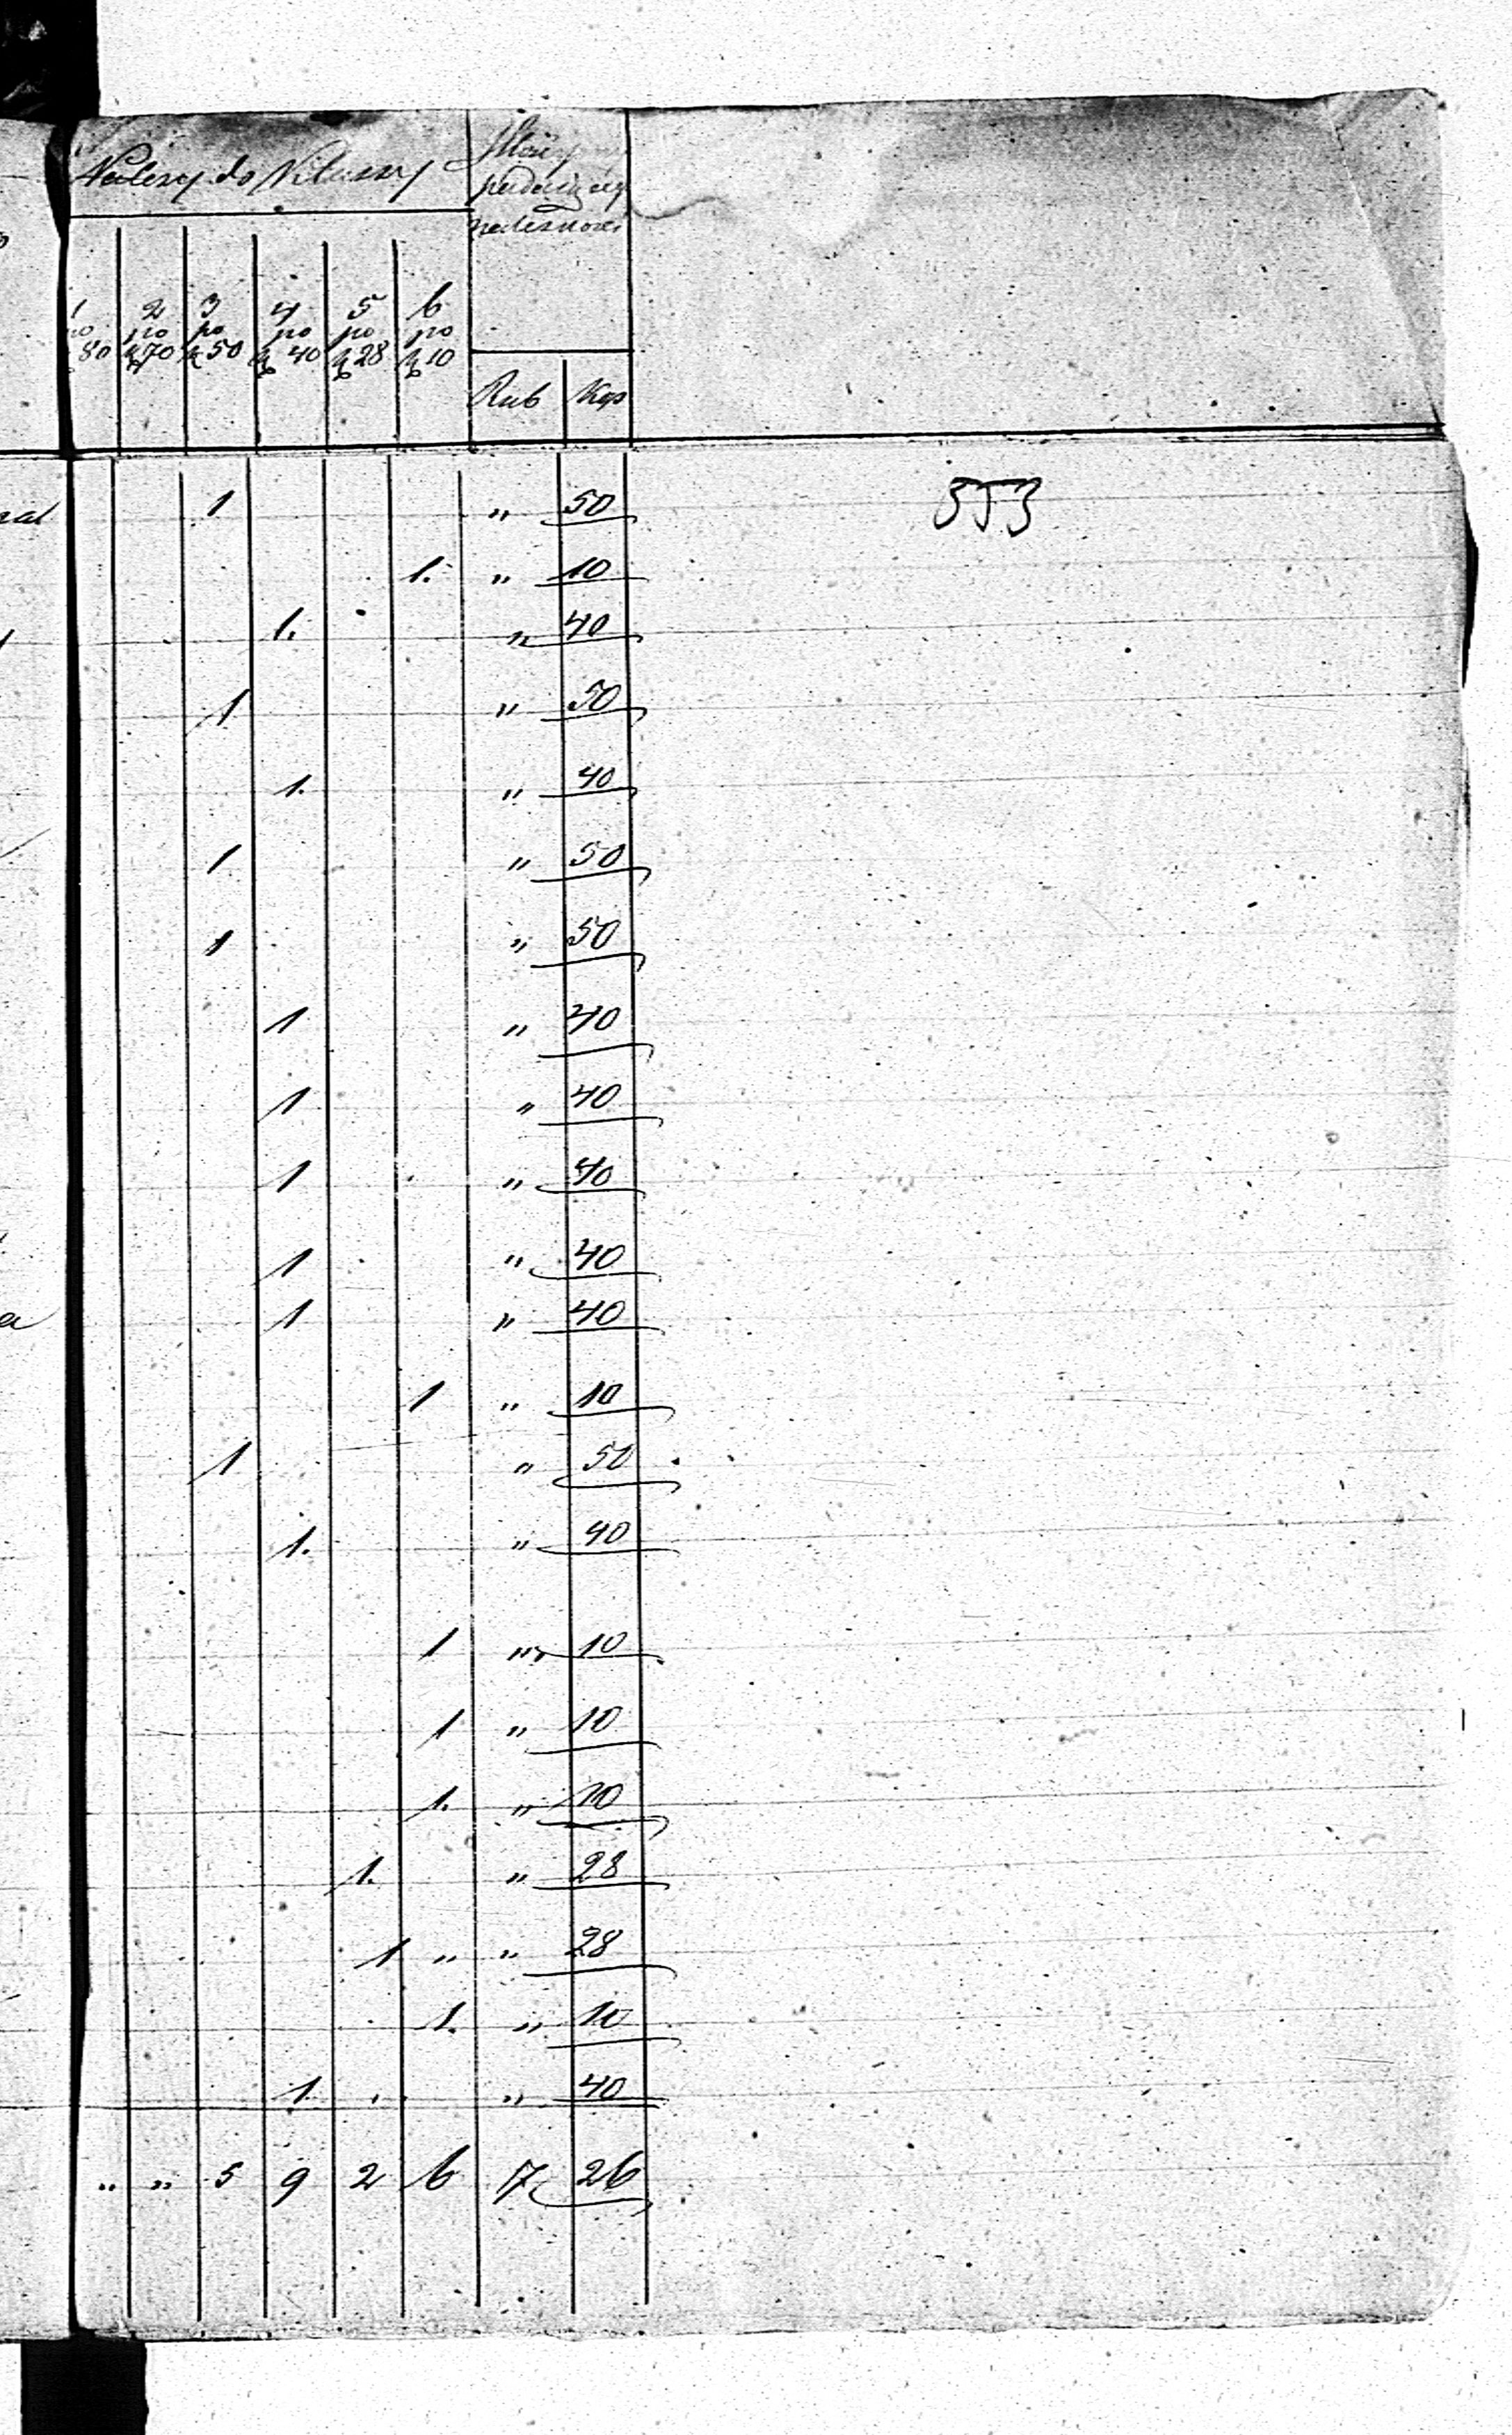 Należy do Klassy
należności
1 2 3 4 5 6
po po po po po po
80 k 70 k 50 k 40 k 28 k 10
Rub Kop
1 " 50
553
1. " 10
1. " 40
1 " 50
1. " 40
1 " 50
1 " 50
1 " 40
1 " 40
1 " 40
1 " 40
1 " 40
1 " 10
1 " 50
1. " 40
1 " 10
1 " 10
1. " 10
1. " 28
1 " " 28
1. " 10
1 " 40
" " 5 9 2 6 7 26